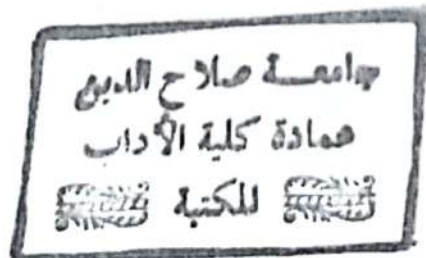 جامعة صلاح الدين
عمادة كلية الآداب
المكتبة